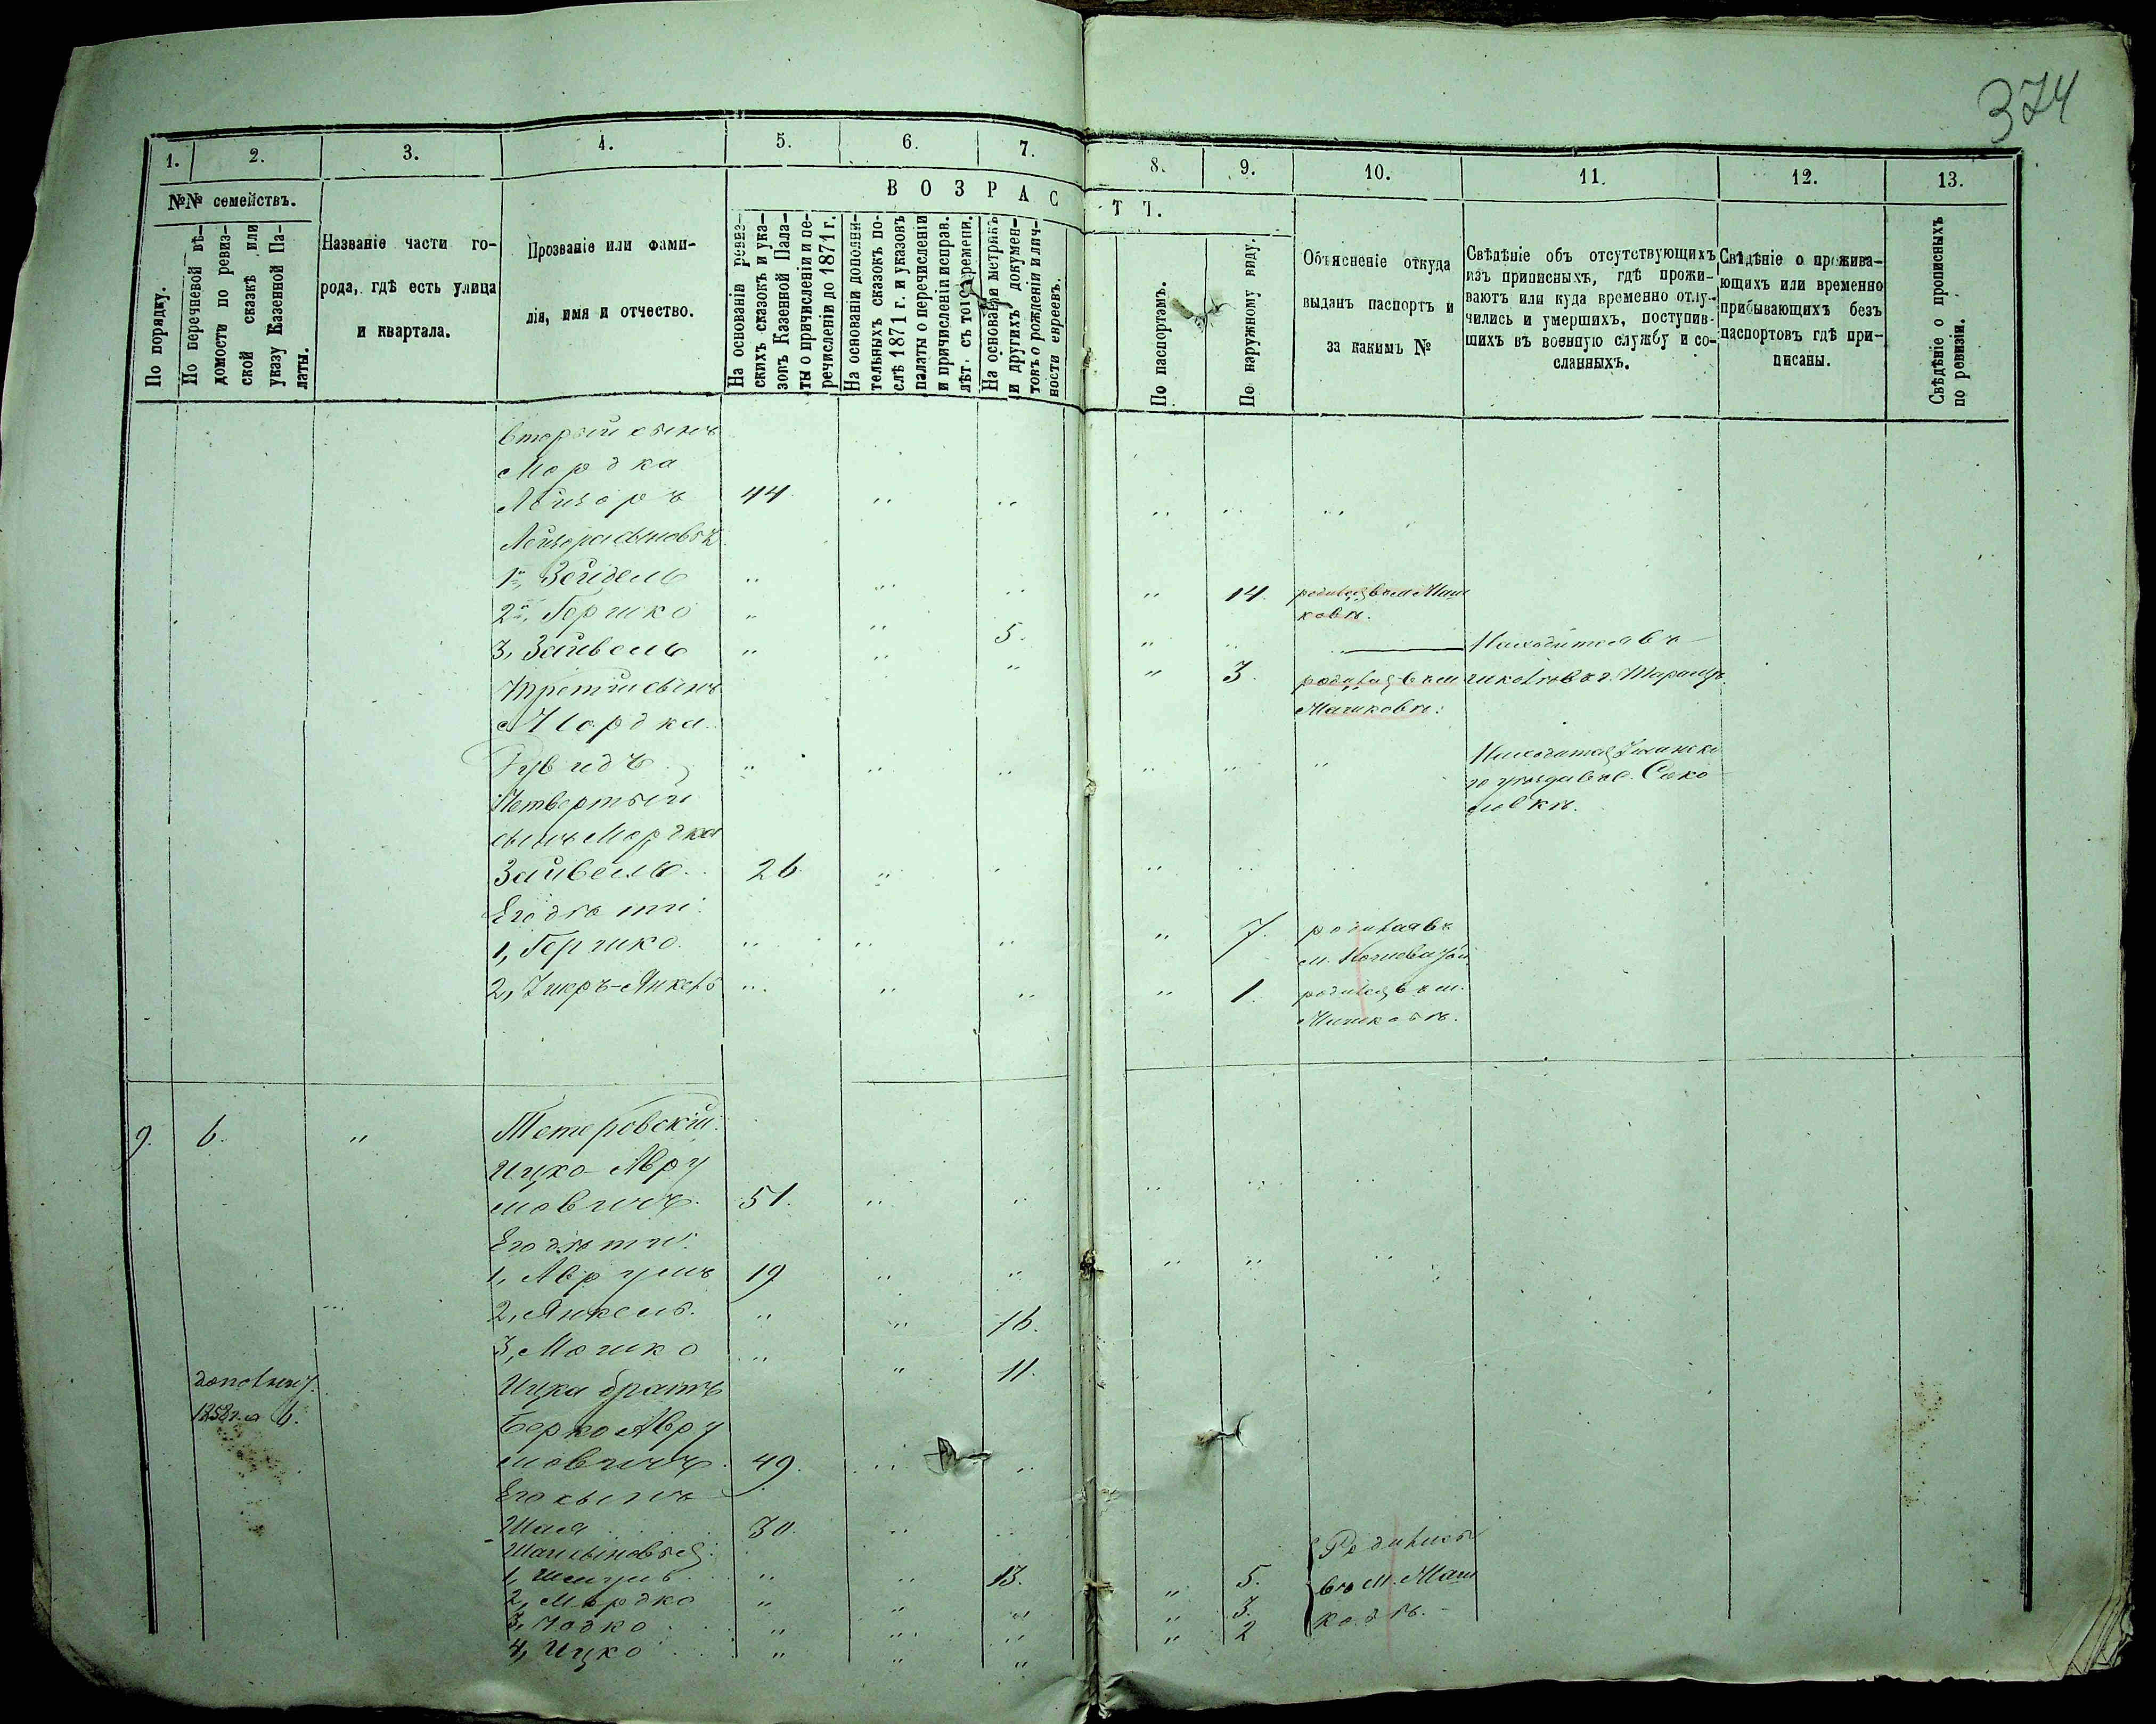 374
1. 2. 3. 4. 5. 6. 7. 8. 9. 10. 11. 12. 13.
№№ семействъ.
В О З Р А С Т Ъ.
По порядку.
По перечневой вѣ-
домости по ревиз-
ской сказкѣ или
указу Казенной Па-
латы.
Названіе части го-
рода, гдѣ есть улица
и квартала.
Прозваніе или фами-
лія, имя и отчество.
На основаніи ревиз-
скихъ сказокъ и ука-
зовъ Казенной Пала-
ты о причисленіи и пе-
речисленіи до 1871 г.
На основаніи дополни-
тельныхъ сказокъ по-
слѣ 1871 г. и указовъ
палаты о перечисленіи
и причисленіи исправ.
лѣт. съ того времени.
На основаніи метрикъ
и другихъ докумен-
товъ о рожденіи и лич-
ности евреевъ.
По паспортамъ.
По наружному виду.
Объясненіе откуда
выданъ паспортъ и
за какимъ №
Свѣдѣніе объ отсутствующихъ
изъ приписныхъ, гдѣ прожи-
ваютъ или куда временно отлу-
чились и умершихъ, поступив-
шихъ въ военную службу и со-
сланныхъ.
Свѣдѣніе о прожива-
ющихъ или временно
прибывающихъ безъ
паспортовъ гдѣ при-
писаны.
Свѣдѣніе о прописныхъ
по ревизіи.
Вторый сынъ
Мордка
Лейзоръ 44 " " " " "
Лейзора сыновья
1й, Зейдель " " " " 14. родился в м. Маш
ковѣ.
2й, Гершко " " 5. " " Находится въ
3, Зайвель " " " " 3. родился въ м.
Машковѣ:
Третій сынъ
Мордка
Рувидъ " " " " " " Находится Уманска
го уѣзда в с. Соко
ловкѣ.
Четвертый
сынъ Мордка
Зайвель. 26 " " " "
Его дѣти:
1, Гершко. " " " " 7. родился въ
м.
2, Ушеръ-Янкель " " " " 1. родился въ м.
Машковѣ.
9. 6. " Тетеровскій
Ицко Авру
мовичъ. 51. " " " " "
Его дѣти:
1, Аврумъ 19 " " " " "
2, Янкель. " " 16.
3, Мошко " " 11.
дополнит.
1858 г. 6. Ицка братъ
Берко Авру
мовичъ. 49. " "
Его сынъ
Шая 30. " "
Шаи сыновья:
1, Шмуль " " 13.
2, Мордко " " " " 5. Родились
3, Іодко " " " " 3. въ м. Маш
4, Ицко " " " " 2 ковѣ.